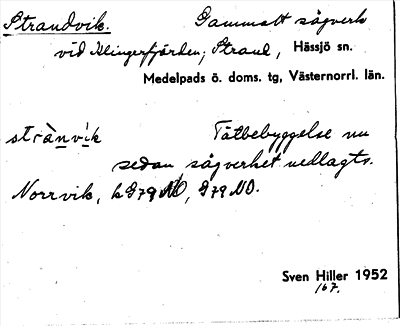 Strandvik. Gammalt sågverk
vid Klingerfjärden, Strand, Hässjö sn.
Medelpads ö. doms. tg, Västernorrl. län.
strànvik Tätbebyggelse nu
sedan sågverket nedlagts.
Norrvik, k G79 NO, G79 NO.
Sven Hiller 1952
167.